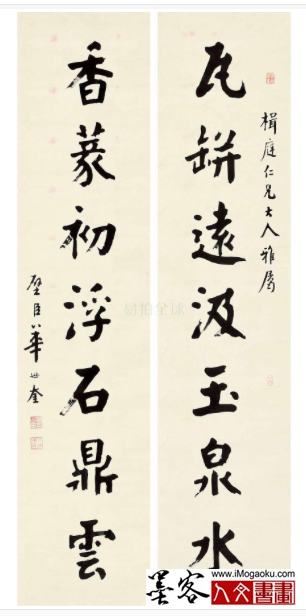 楫庭仁兄大人雅屬
瓦缾遠汲玉泉水
香篆初浮石鼎雲
璧臣華世奎
易拍全球
www.iMogaoku.com
墨客人文書畫